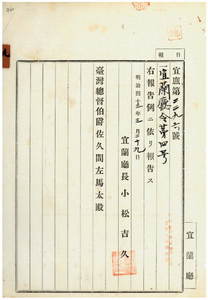 報告
宜庶第二二九六號
一宜蘭廳令第四号
右報告例ニ依リ報告ス
明治四十五年三月二十九日
宜蘭廳長小松吉久
臺灣總督伯爵佐久間左馬太殿
宜蘭廳